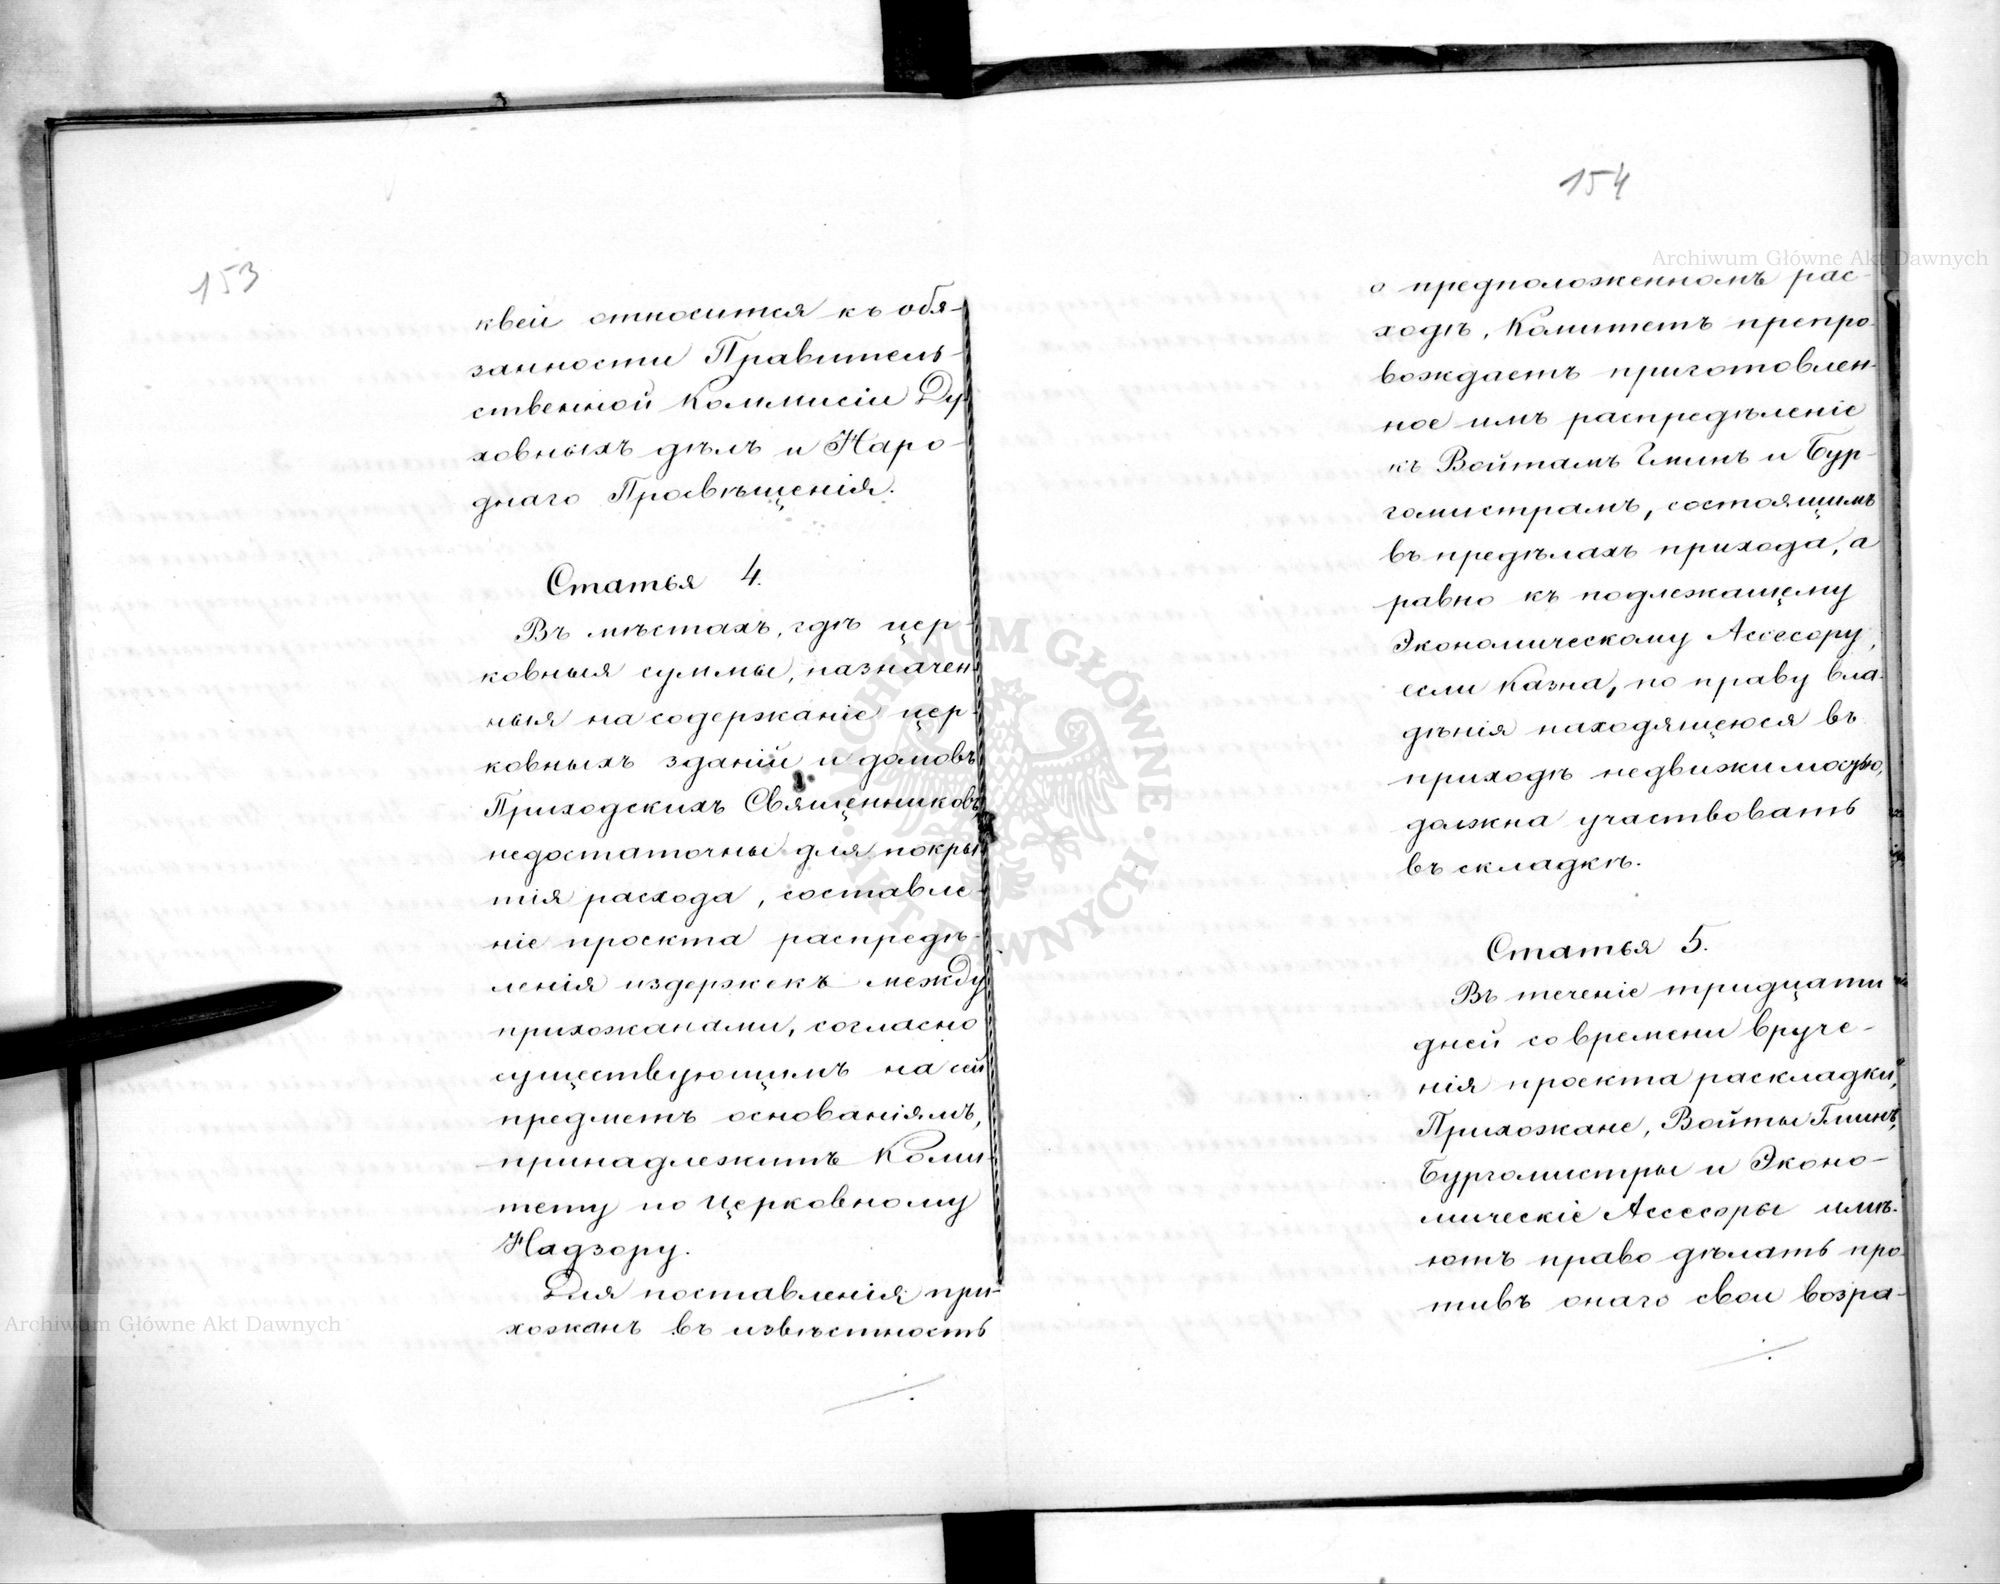 153
квей относится къ обя-
занности Правитель-
ственной Коммисіи Ду
ховныхъ дѣлъ и Наро-
днаго Просвѣщенія.
Статья 4.
Въ мѣстахъ, гдѣ цер-
ковныя суммы, назначен
ныя на содержаніе цер-
ковныхъ зданій и домовъ
Приходскихъ Священниковъ,
недостаточны для покры
тія расхода, составле-
ніе проекта распредѣ-
ленія издержекъ между
прихожанами, согласно
существующимъ на сей
предметъ основаніямъ,
принадлежитъ Коми-
тету по Церковному
Надзору.
Для поставленія при-
хожанъ въ извѣстность
154
о предположенномъ рас-
ходѣ, Комитетъ препро-
вождаетъ приготовлен-
ное имъ распредѣленіе
къ Войтамъ Гминъ и Бур-
гомистрамъ, состоящимъ
въ предѣлахъ прихода, а
равно къ подлежащему
Экономическому Ассесору,
если Казна, по праву вла-
дѣнія находящеюся въ
приходѣ недвижимостью,
должна участвовать
въ складкѣ.
Статья 5.
Въ теченіе тридцати
дней со времени вруче-
нія проекта раскладки,
Прихожане, Войты Гминъ,
Бургомистры и Эконо-
мическіе Ассесоры имѣ-
ютъ право дѣлать про-
тивъ онаго свои возра-
Archiwum Główne Akt Dawnych
Archiwum Główne Akt Dawnych
ARCHIWUM GŁÓWNE AKT DAWNYCH